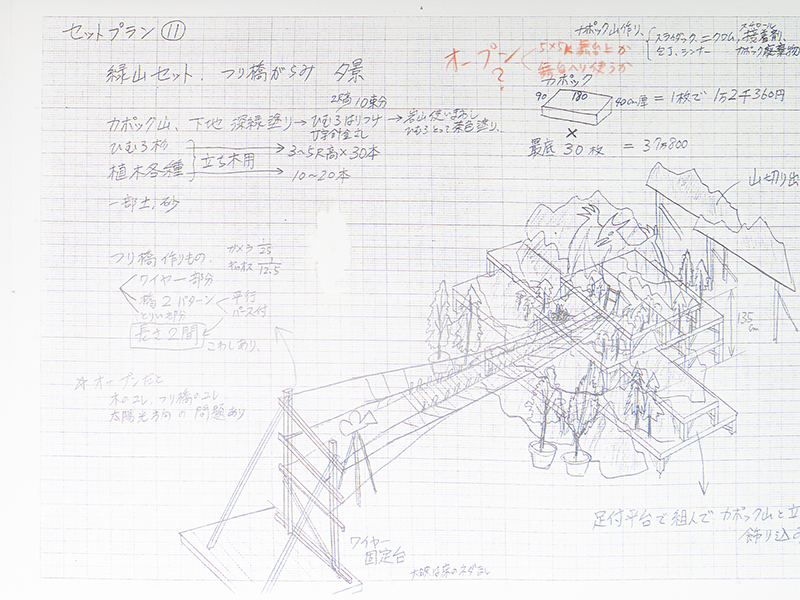 セットプラン ⑪
緑山セット、つり橋がらみ 夕景
オープン?
5×5尺舞台上か
舞台ヘリ使うか
カポック山作り、
スライダック、ニクロム、
接着剤、
包丁、シンナー
カポック廃棄物
カポック
90 180 40cm厚 = 1枚で 1万2千360円
×
最底 30枚 = 37万800
カポック山、下地 深緑塗り→ひむろはりつけ→岩山使いまわし
ひむろとって茶色塗り、
ひむろ杉
植木各種
立ち木用
3〜5尺高×30本
10〜20本
一部土、砂
つり橋 作りもの、
ワイヤー部分
橋2パターン
平行
パース付
長さ2間
こわしあり、
ガメラ 1/25
ギャオス 1/12.5
☆オープンだと
木のユレ、つり橋のユレ
太陽光方向の問題あり
山切り出
135cm
ワイヤー
固定台
足付平台で組んでカポック山と立
飾り込み